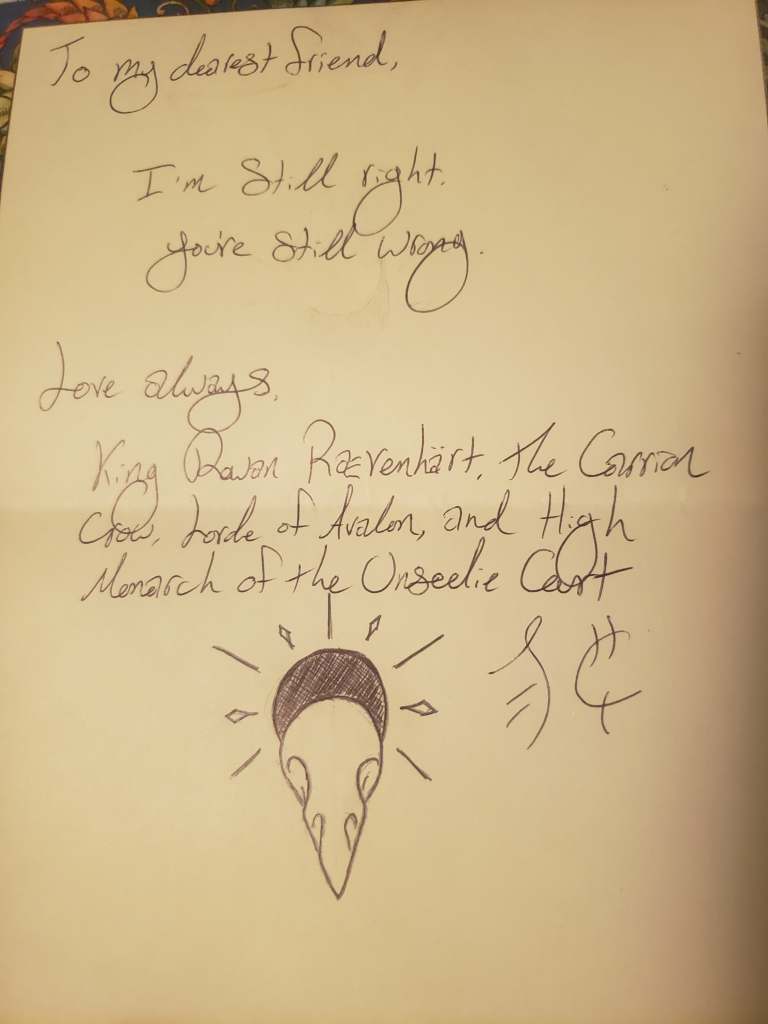 To my dearest friend,
I'm Still right.
You're Still wrong.
Love always,
King Rowan Rævenhärt, the Carrion
Crow, Lorde of Avalon, and High
Monarch of the Unseelie Court